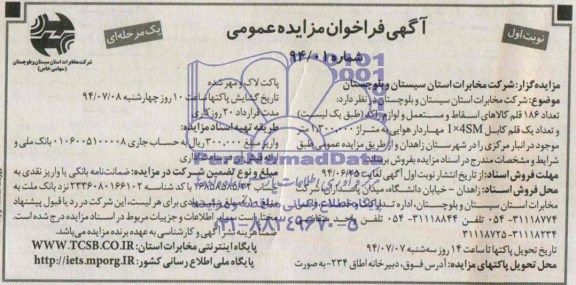 آگهی فراخوان مزایده عمومی
نوبت اول
یک مرحله‌ای
شماره ۹۴/۰۱
شرکت مخابرات استان سیستان و بلوچستان
(سهامی خاص)
مزایده گزار: شرکت مخابرات استان سیستان و بلوچستان
موضوع: شرکت مخابرات استان سیستان و بلوچستان در نظر دارد:
تعداد ۱۸۶ قلم کالاهای اسقاط و مستعمل و لوازم یدکی (طبق یک لیست)
و تعداد یک قلم کابل 1×4SM مهاردار هوایی به متراژ ۱۰۳۰۰۰ متر
موجود در انبار مرکزی را در شهرستان زاهدان و از طریق مزایده عمومی طبق
شرایط و مشخصات مندرج در اسناد مزایده بفروش برساند.
مهلت فروش اسناد: از تاریخ انتشار نوبت اول آگهی لغایت ۹۴/۰۶/۲۵
محل فروش اسناد: زاهدان - خیابان دانشگاه، میدان پاسداران، شرکت
مخابرات استان سیستان و بلوچستان، اداره
۳۱۱۱۸۷۷۴-۰۵۴ تلفن: ۳۱۱۱۸۸۴۴-۰۵۴ تلفن
۳۱۱۱۸۲۳۴-۳۱۱۱۸۷۲۵
تاریخ تحویل پاکتها تا ساعت ۱۴ روز سه‌شنبه ۹۴/۰۷/۰۷
محل تحویل پاکتهای مزایده: آدرس فوق، دبیرخانه اطاق ۲۳۴-به صورت
پاکت لاک و مهر شده
تاریخ گشایش پاکتها ساعت ۱۰ روز چهارشنبه ۹۴/۰۷/۰۸
مدت قرارداد ۲۰ روز کاری
طریقه تهیه اسناد مزایده:
واریز مبلغ ۳۰۰۰۰۰ ریال به حساب جاری ۰۱۰۶۰۰۵۱۰۰۰۰۸ بانک ملی
مبلغ و نوع تضمین شرکت در مزایده: ضمانتنامه بانکی یا واریز نقدی به
با کد شناسه ۲۳۳۶۰۸۰۱۶۶۱۰۲ نزد بانک ملت به
برای هر لیست، این شرکت در رد یا قبول پیشنهاد
مختار است سایر اطلاعات و جزییات مربوط در اسناد مزایده درج شده است.
ضمناً هزینه نشر آگهی و کارشناسی به عهده برنده مزایده می‌باشد.
پایگاه اینترنتی مخابرات استان: WWW.TCSB.CO.IR
پایگاه ملی اطلاع رسانی کشور: http://iets.mporg.IR
ParsNamadData
۰۲۱-۸۸۳۴۹۶۷۰-۵